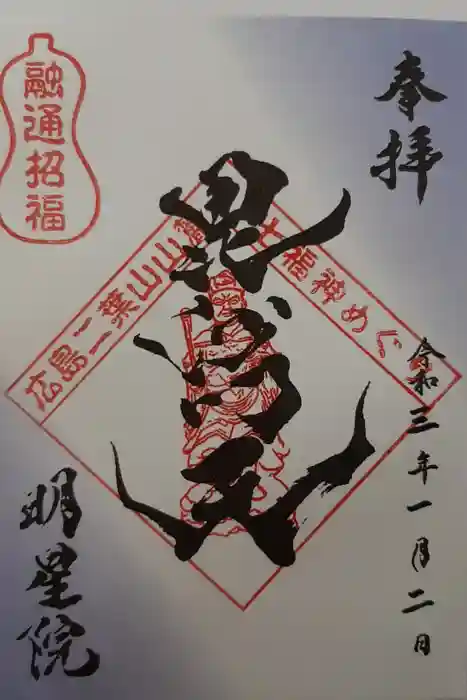 奉拝
令和三年一月二日
七福神めぐり
毘沙門天
広島二葉山山麓
融通招福
明星院